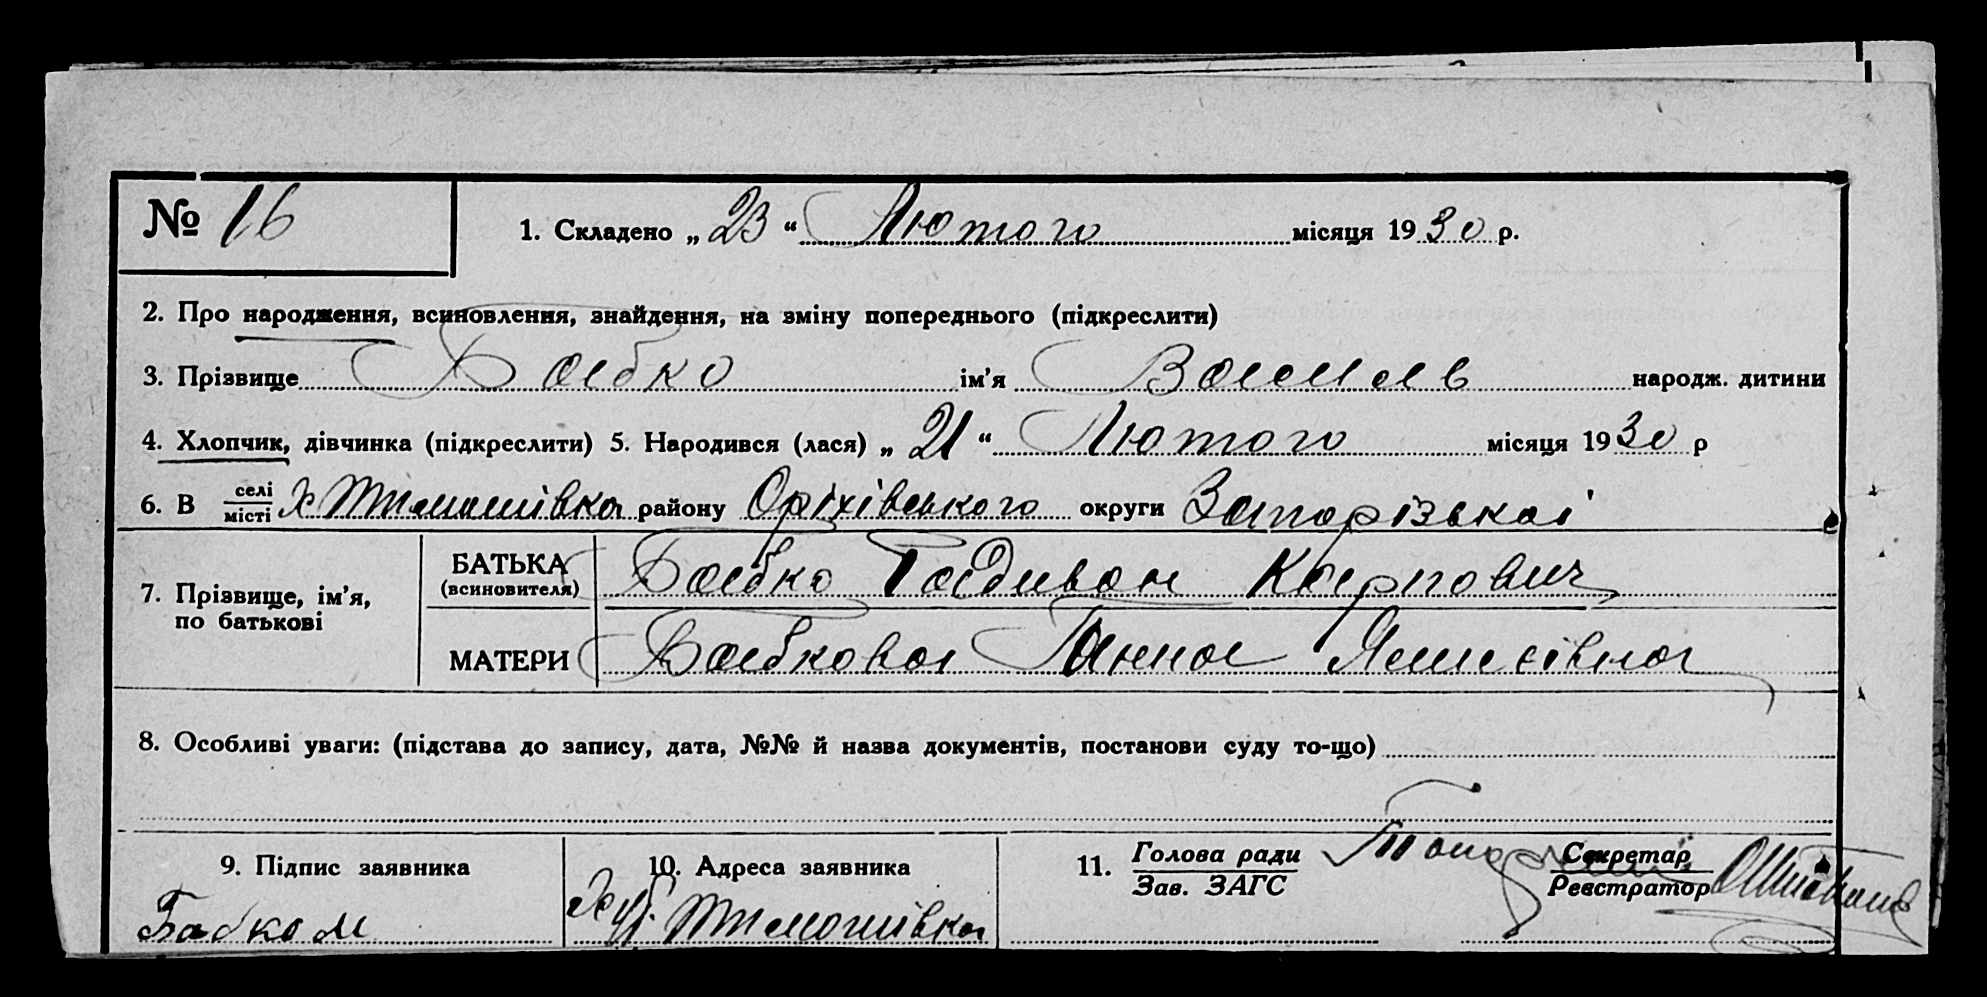 № 16
1. Складено „23“ Лютого місяця 1930 р.
2. Про народження, всиновлення, знайдення, на зміну попереднього (підкреслити)
3. Прізвище Бабко ім’я Василь народж. дитини
4. Хлопчик, дівчинка (підкреслити) 5. Народився (лася) „21“ Лютого місяця 1930 р
6. В селі місті х Тимошівка району Оріхівського округи Запорізької
7. Прізвище, ім’я, по батькові
БАТЬКА (всиновителя) Бабко Карпович
МАТЕРИ Бабкова Ганна
8. Особливі уваги: (підстава до запису, дата, №№ й назва документів, постанови суду то-що)
9. Підпис заявника
10. Адреса заявника
11. Голова ради Зав. ЗАГС
Секретар Реєстратор
Бабко М
Хут. Тимошівка